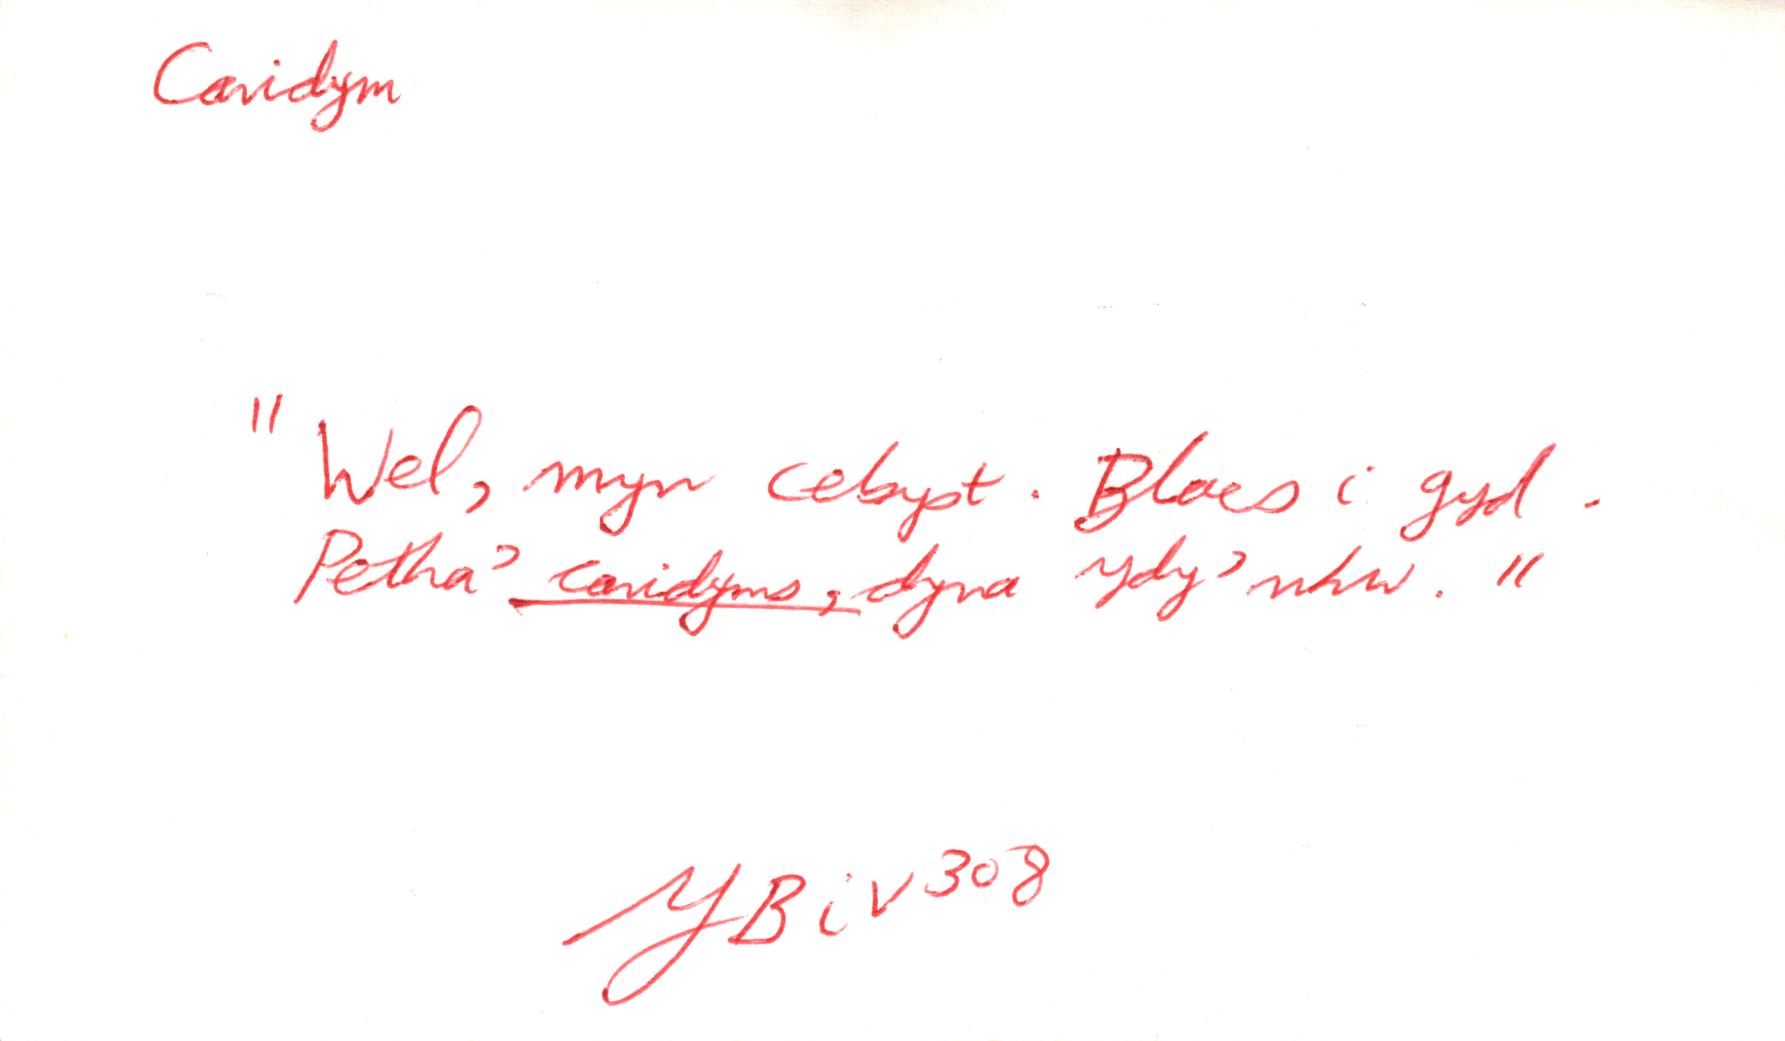 Caridym
"Wel, myn cebyst. Blaes i gyd.
Petha' caridyms, dyna ydy' nhw."
YBiv308